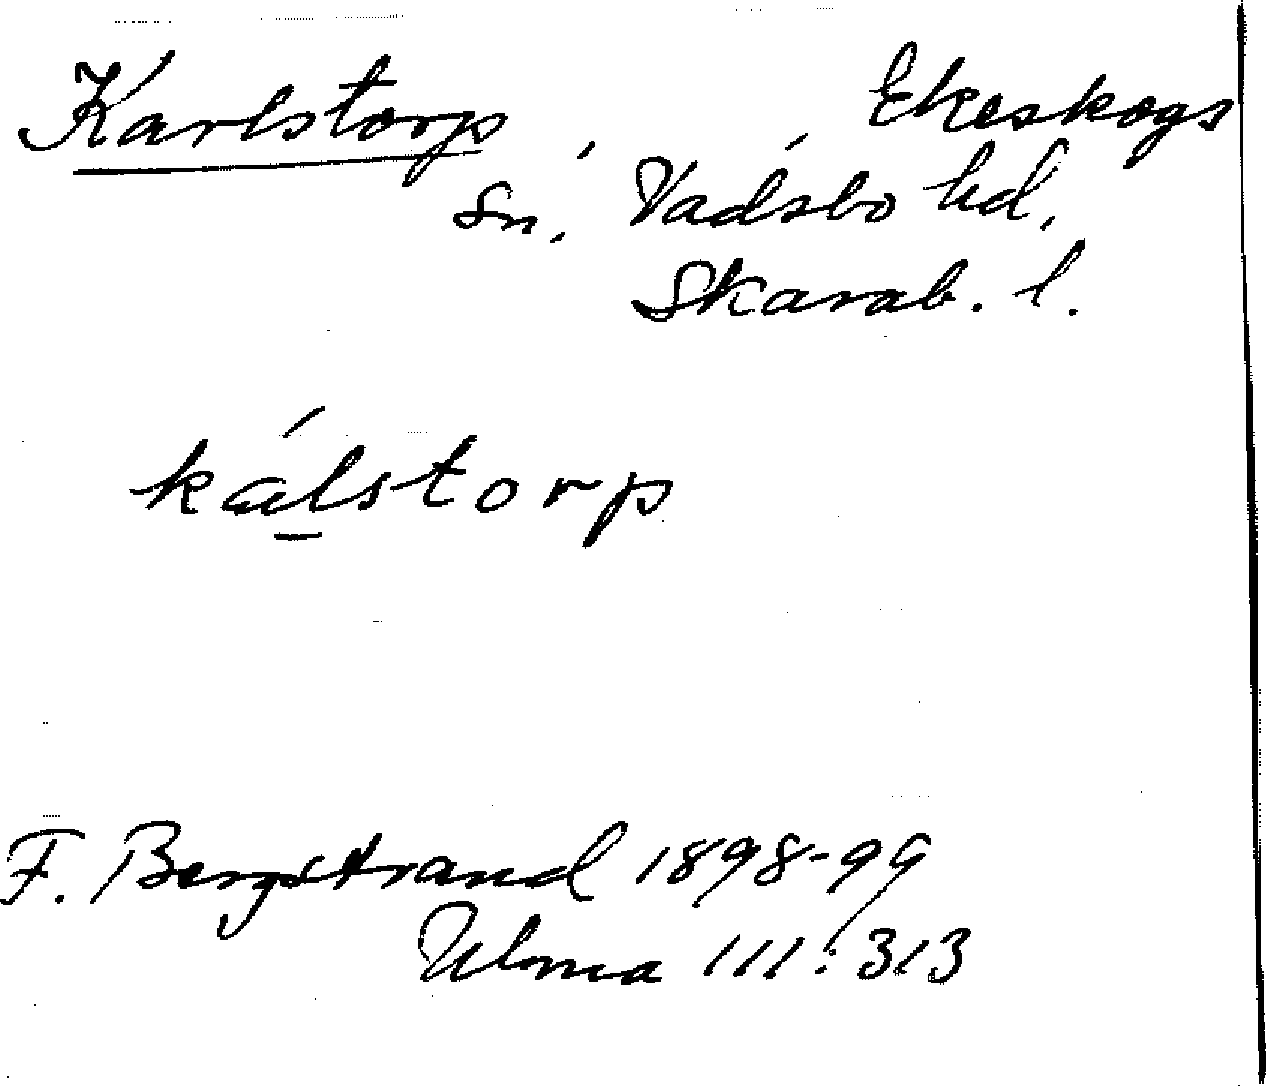 Karlstorp, Ekeskogs
Sn., Vadsbo hd,
Skarab. l.
kálstorp
F. Bergstrand 1898-99
Ulma 111:313